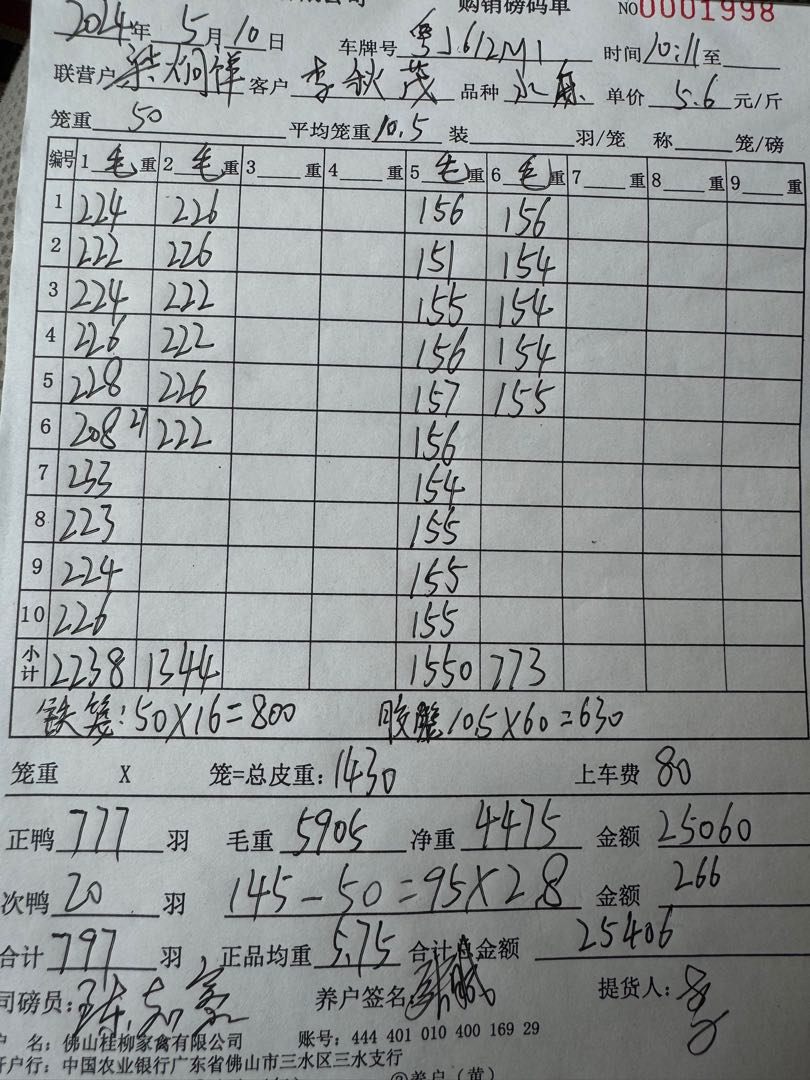 购销磅码单 NO0001998
2024年5月10日 车牌号 粤J612M1 时间10:11至
联营户 客户 李秋茂 品种 单价 5.6 元/斤
笼重 50 平均笼重10.5 装 羽/笼 称 笼/磅
编号 1毛重 2毛重 3 重 4 重 5毛重 6毛重 7 重 8 重 9 重
1 224 226 156 156
2 222 226 151 154
3 224 222 155 154
4 226 222 156 154
5 228 226 157 155
6 208 27 222 156
7 233 154
8 223 155
9 224 155
10 226 155
小计 2238 1344 1550 773
铁笼:50X16=800 胶笼10.5X60=630
笼重 X 笼=总皮重:1430 上车费 80
正鸭 777 羽 毛重 5905 净重 4475 金额 25060
次鸭 20 羽 145-50=95X2.8 金额 266
合计 797 羽 正品均重 5.75 合计总金额 25406
司磅员: 养户签名: 提货人:
户 名:佛山桂柳家禽有限公司 账号:444 401 010 400 169 29
开户行:中国农业银行广东省佛山市三水区三水支行
养户(黄)